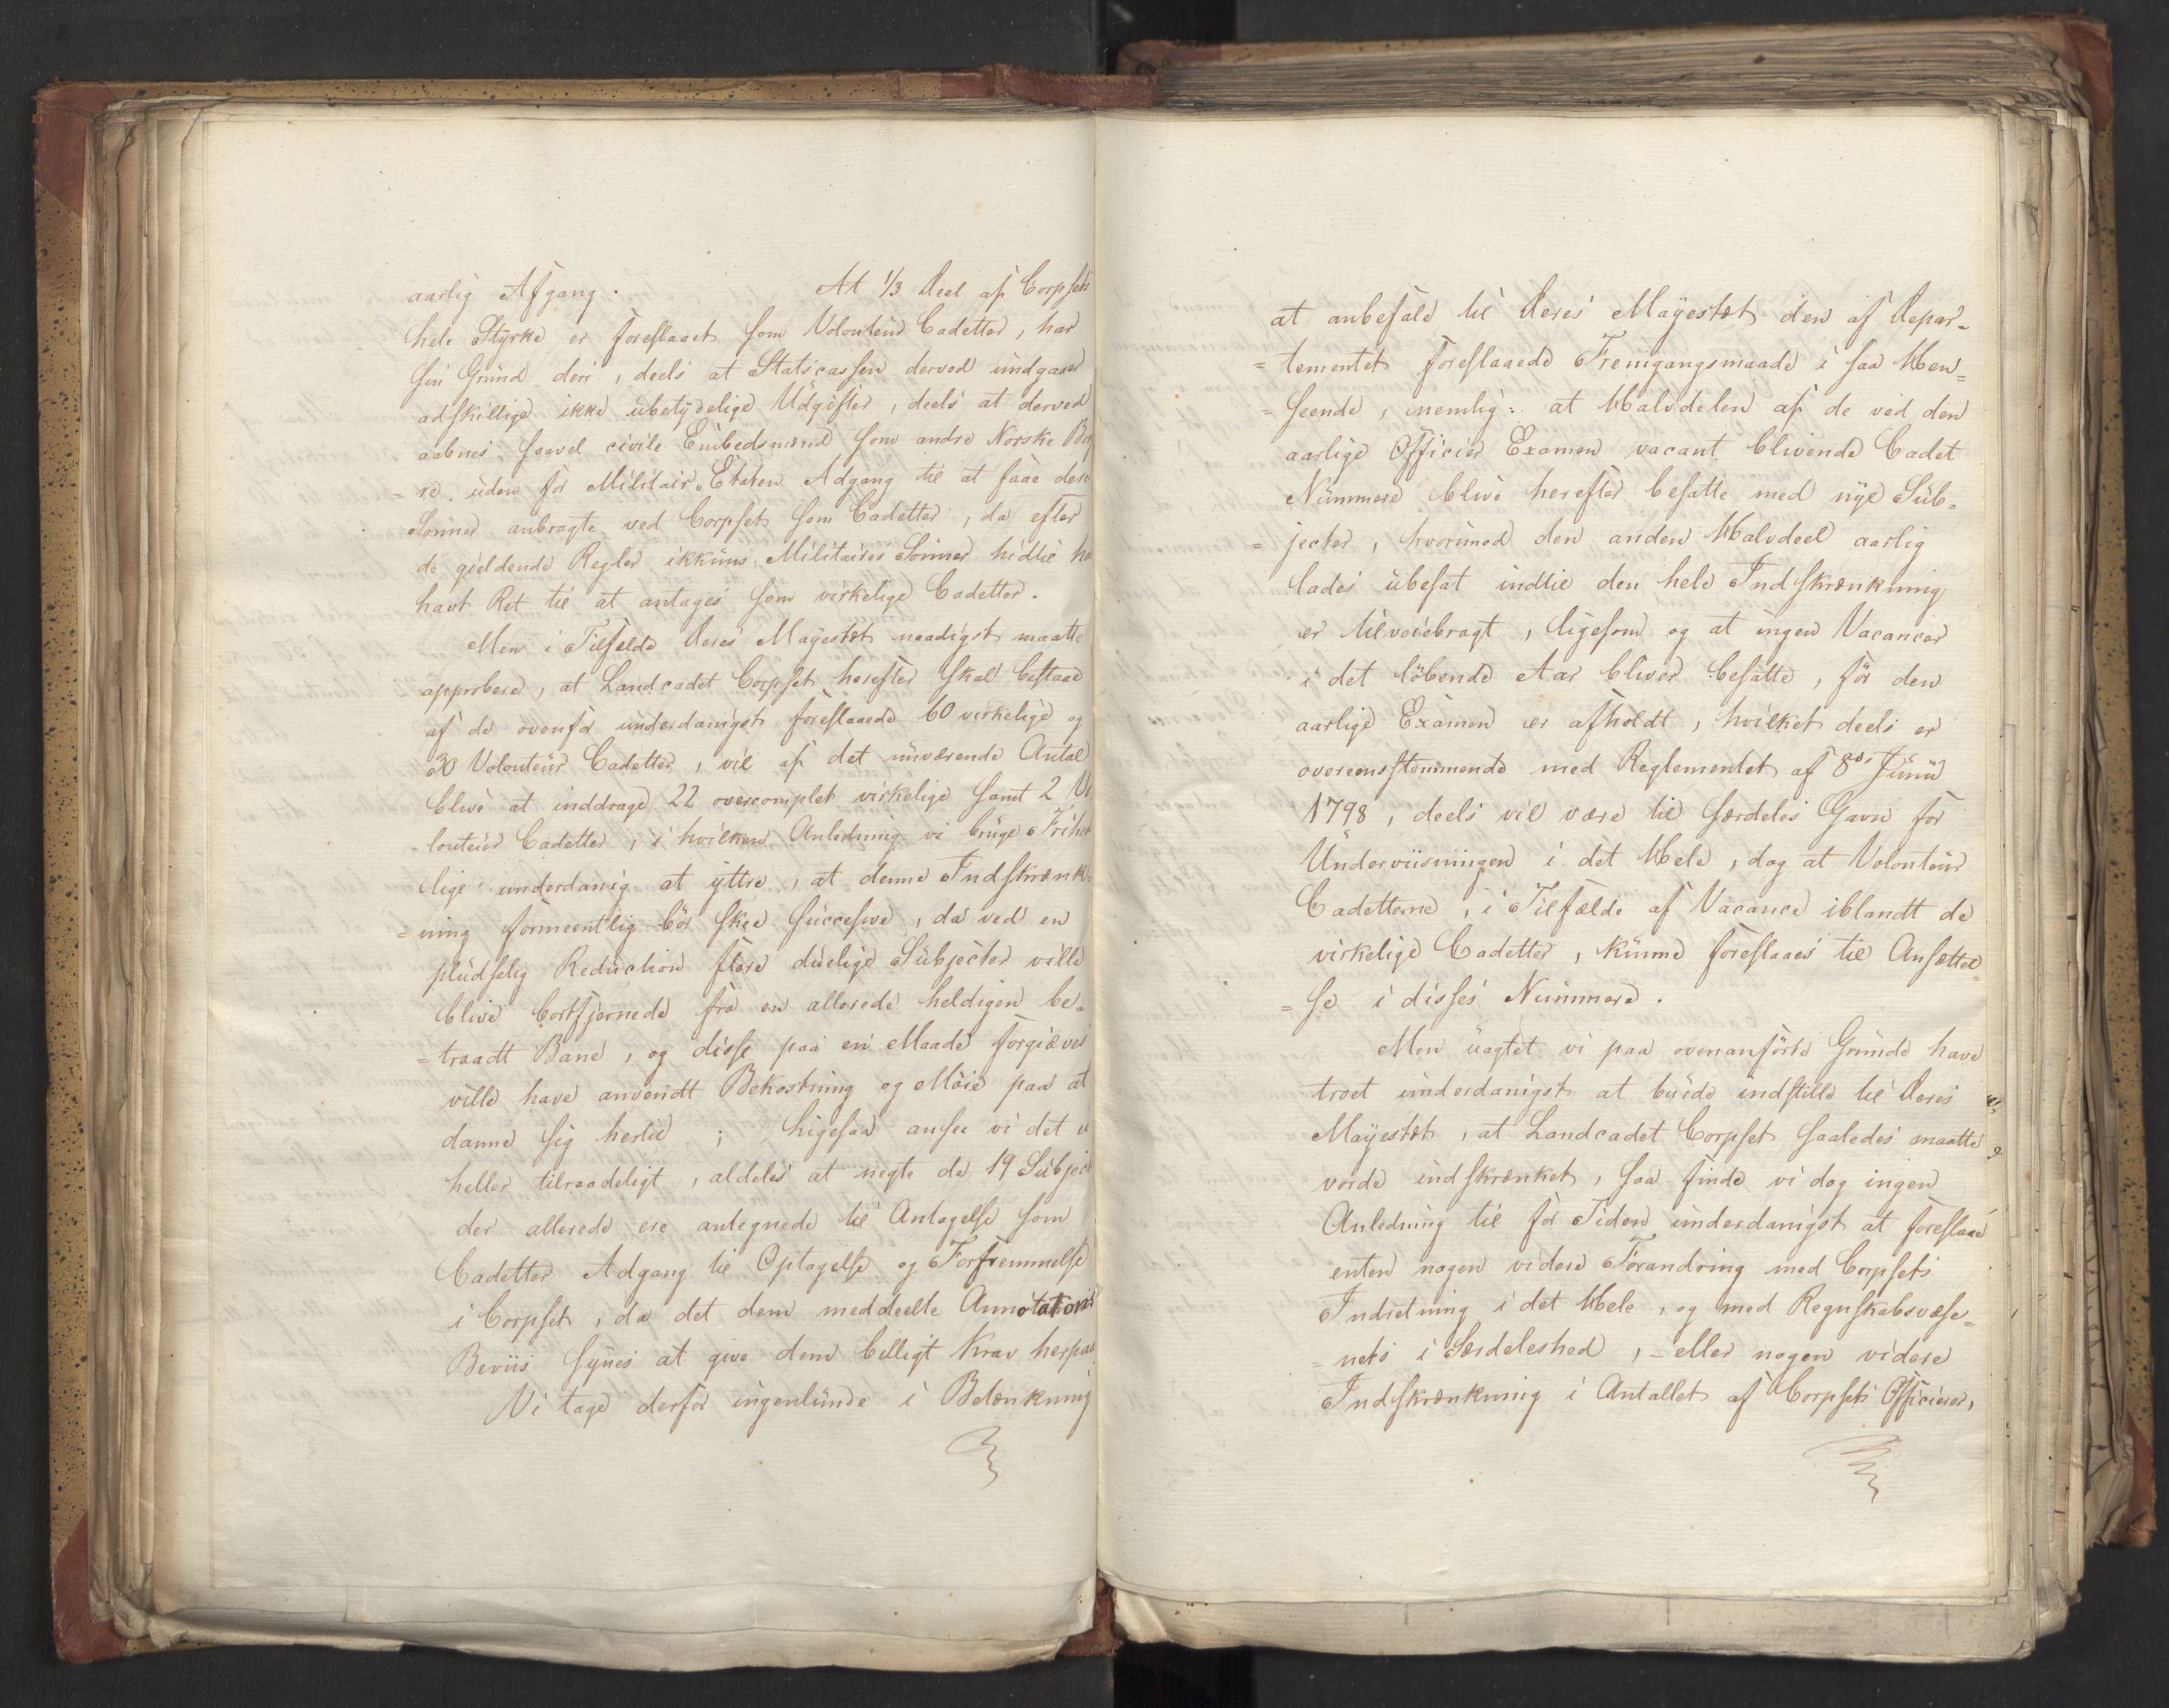 aarlig Afgang. At 1/3 Deel af Corpsets
hele Styrke er foreslaaet som Volonteur Cadetter, har
sin Grund deri, deels at Statscassen derved undgaaer
adskillige ikke ubetydelige Udgifter, deels at derved
aabnes saavel civile Embedsmænd som andre Norske Bor
=re uden for Militair-Etaten Adgang til at faae deres
Sönner anbragte ved Corpset som Cadetter, da efter
de gieldende Regler ikkuns Militaires Sönner hidtil ha
havt Ret til at antages som virkelige Cadetter.
Men i Tilfælde Deres Majestæt naadigst maatte
approbere, at Landcadet Corpset herefter skal bestaae
af de ovenfor underdanigst foreslaaede 60 virkelige og
30 Volonteur Cadetter, vil af det nuværende Antal
blive at inddrage 22 overcomplet virkelige samt 2 Vo
=lonteur Cadetter, i hvilken Anledning vi bruge Frihed
lige underdanig at yttre, at denne Indskrænk=
=ning formeentlig bör skee successive, da ved en
pludselig Reduction flere duelige Subjecter ville
blive bortfjernede fra en allerede heldigen be=
=traadt Bane, og disse paa en Maade forgiæves
ville have anvendt Bekostning og Möie paa at
danne sig hertil; Ligesaa ansee vi det ei
heller tilraadeligt, aldeles at negte de 19 Subjec
der allerede ere antegnede til Antagelse som
Cadetter Adgang til Optagelse og Forfremmelse
i Corpset, da det dem meddeelte Annotations
Beviis synes at give dem billigt Krav herpaa.
Vi tage derfor ingenlunde i Betænkning
at anbefale til Deres Majestæt den af Depar=
=tementet foreslaaede Fremgangsmaade i saa Hen=
=seende, nemlig: at Halvdelen af de ved den
aarlige Officier Examen vacant blivende Cadet
Nummere blive herefter besatte med nye Sub=
=jecter, hvorimod den anden Halvdeel aarlig
lades ubesat indtil den hele Indskrænkning
er tilveiebragt, ligesom og at ingen Vacancer
i det löbende Aar bliver besatte, för den
aarlige Examen er afholdt, hvilket deels er
overeensstemmende med Reglementet af 8de Junii
1798, deels vil være til særdeles Gavn for
Underviisningen i det Hele, dog at Volonteur
Cadetterne, i Tilfælde af Vacance iblandt de
virkelige Cadetter, kunne foreslaaes til Ansættel=
=se i disses Nummere.
Men uagtet vi paa ovenanförte Grunde have
troet underdanigst at burde indstille til Deres
Majestæt, at Landcadet Corpset saaledes maatte
vorde indskrænket, saa finde vi dog ingen
Anledning til for Tiden underdanigst at foreslaae
enten nogen videre Forandring med Corpsets
Indretning i det Hele, og med Regnskabsvæse=
=nets i Særdeleshed, - eller nogen videre
Indskrænkning i Antallet af Corpsets Officierer,